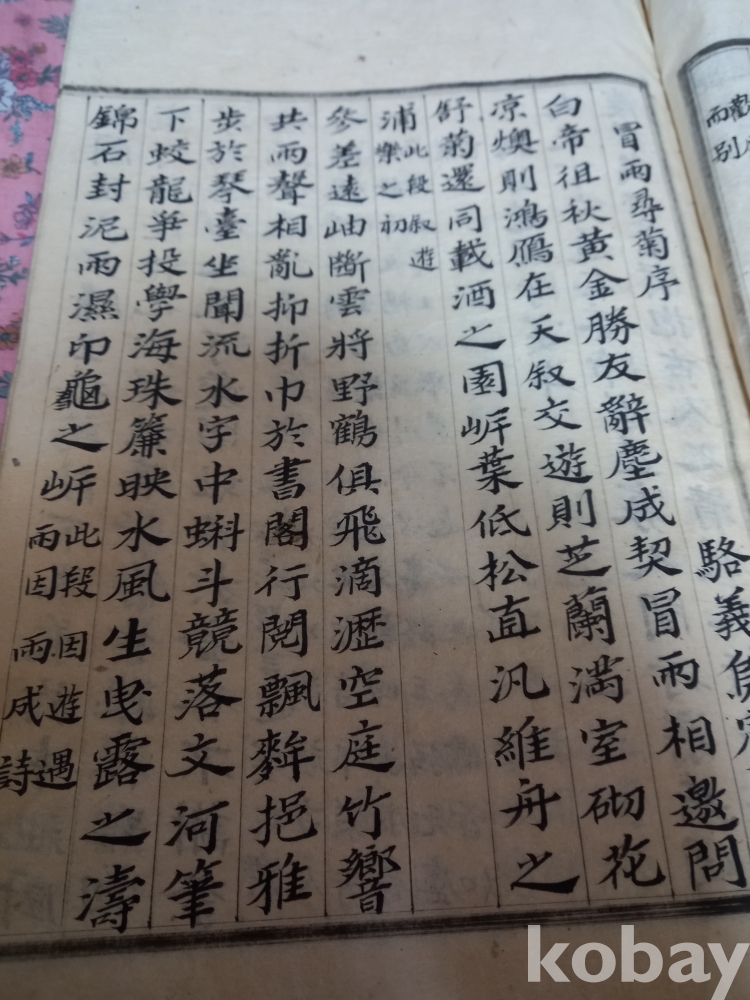 而別
冒雨尋菊序 駱義烏
白帝徂秋黃金勝友辭塵成契冒雨相邀問
凉燠則鴻鴈在天叙交遊則芝蘭滿室砌花
舒菊還同載酒之園岸葉低松直汎維舟之
浦此段叙遊
樂之初
參差遠岫斷雲將野鶴俱飛滴瀝空庭竹響
共雨聲相亂抑折巾於書閣行閱飄麰挹雅
步於琴臺坐聞流水字中蝌斗競落文河筆
下蛟龍爭投學海珠簾映水風生曳露之濤
錦石封泥雨濕印龜之岸此段因遊遇
雨因雨成詩
kobay